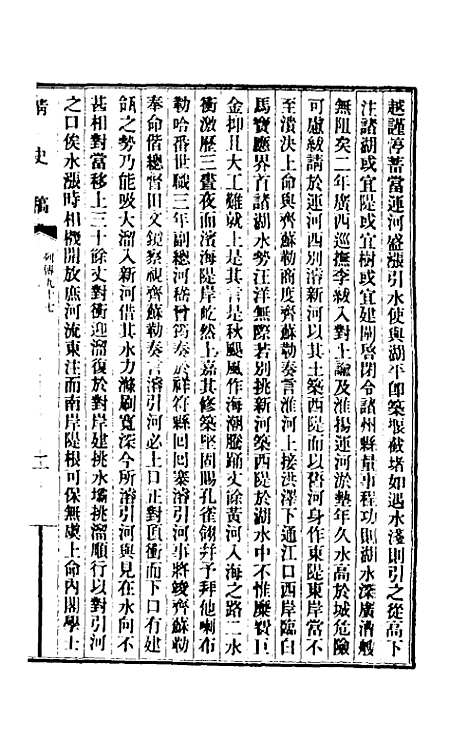 越謹停蓄當運河盛漲引水使與湖平即築堰截堵如遇水淺則引之從高下
注諸湖或宜隄或宜樹或宜建閘啓閉令諸州縣量事程功則湖水深廣漕艘
無阻矣二年廣西巡撫李紱入對上諭及淮揚運河淤墊年久水高於城危險
可慮紱請於運河西別濬新河以其土築西隄而以舊河身作東隄東岸當不
至潰決上命與齊蘇勒商度齊蘇勒奏言淮河上接洪澤下通江口西岸臨白
馬寶應界首諸湖水勢汪洋無際若別挑新河築西隄於湖水中不惟糜費巨
金抑且大工難就上是其言是秋颶風作海潮騰踊丈餘黃河入海之路二水
衝激歷三晝夜而濱海隄岸屹然上嘉其修築堅固賜孔雀翎幷予拜他喇布
勒哈番世職三年副總河嵇曾筠奏於祥符縣回回寨濬引河事將竣齊蘇勒
奉命偕總督田文鏡察視齊蘇勒奏言濬引河必上口正對頂衝而下口有建
瓴之勢乃能吸大溜入新河借其水力滌刷寬深今所濬引河與見在水向不
甚相對當移上三十餘丈對衝迎溜復於對岸建挑水壩挑溜順行以對引河
之口俟水漲時相機開放庶河流東注而南岸隄根可保無虞上命內閣學士
清史稿
列傳九十七
二